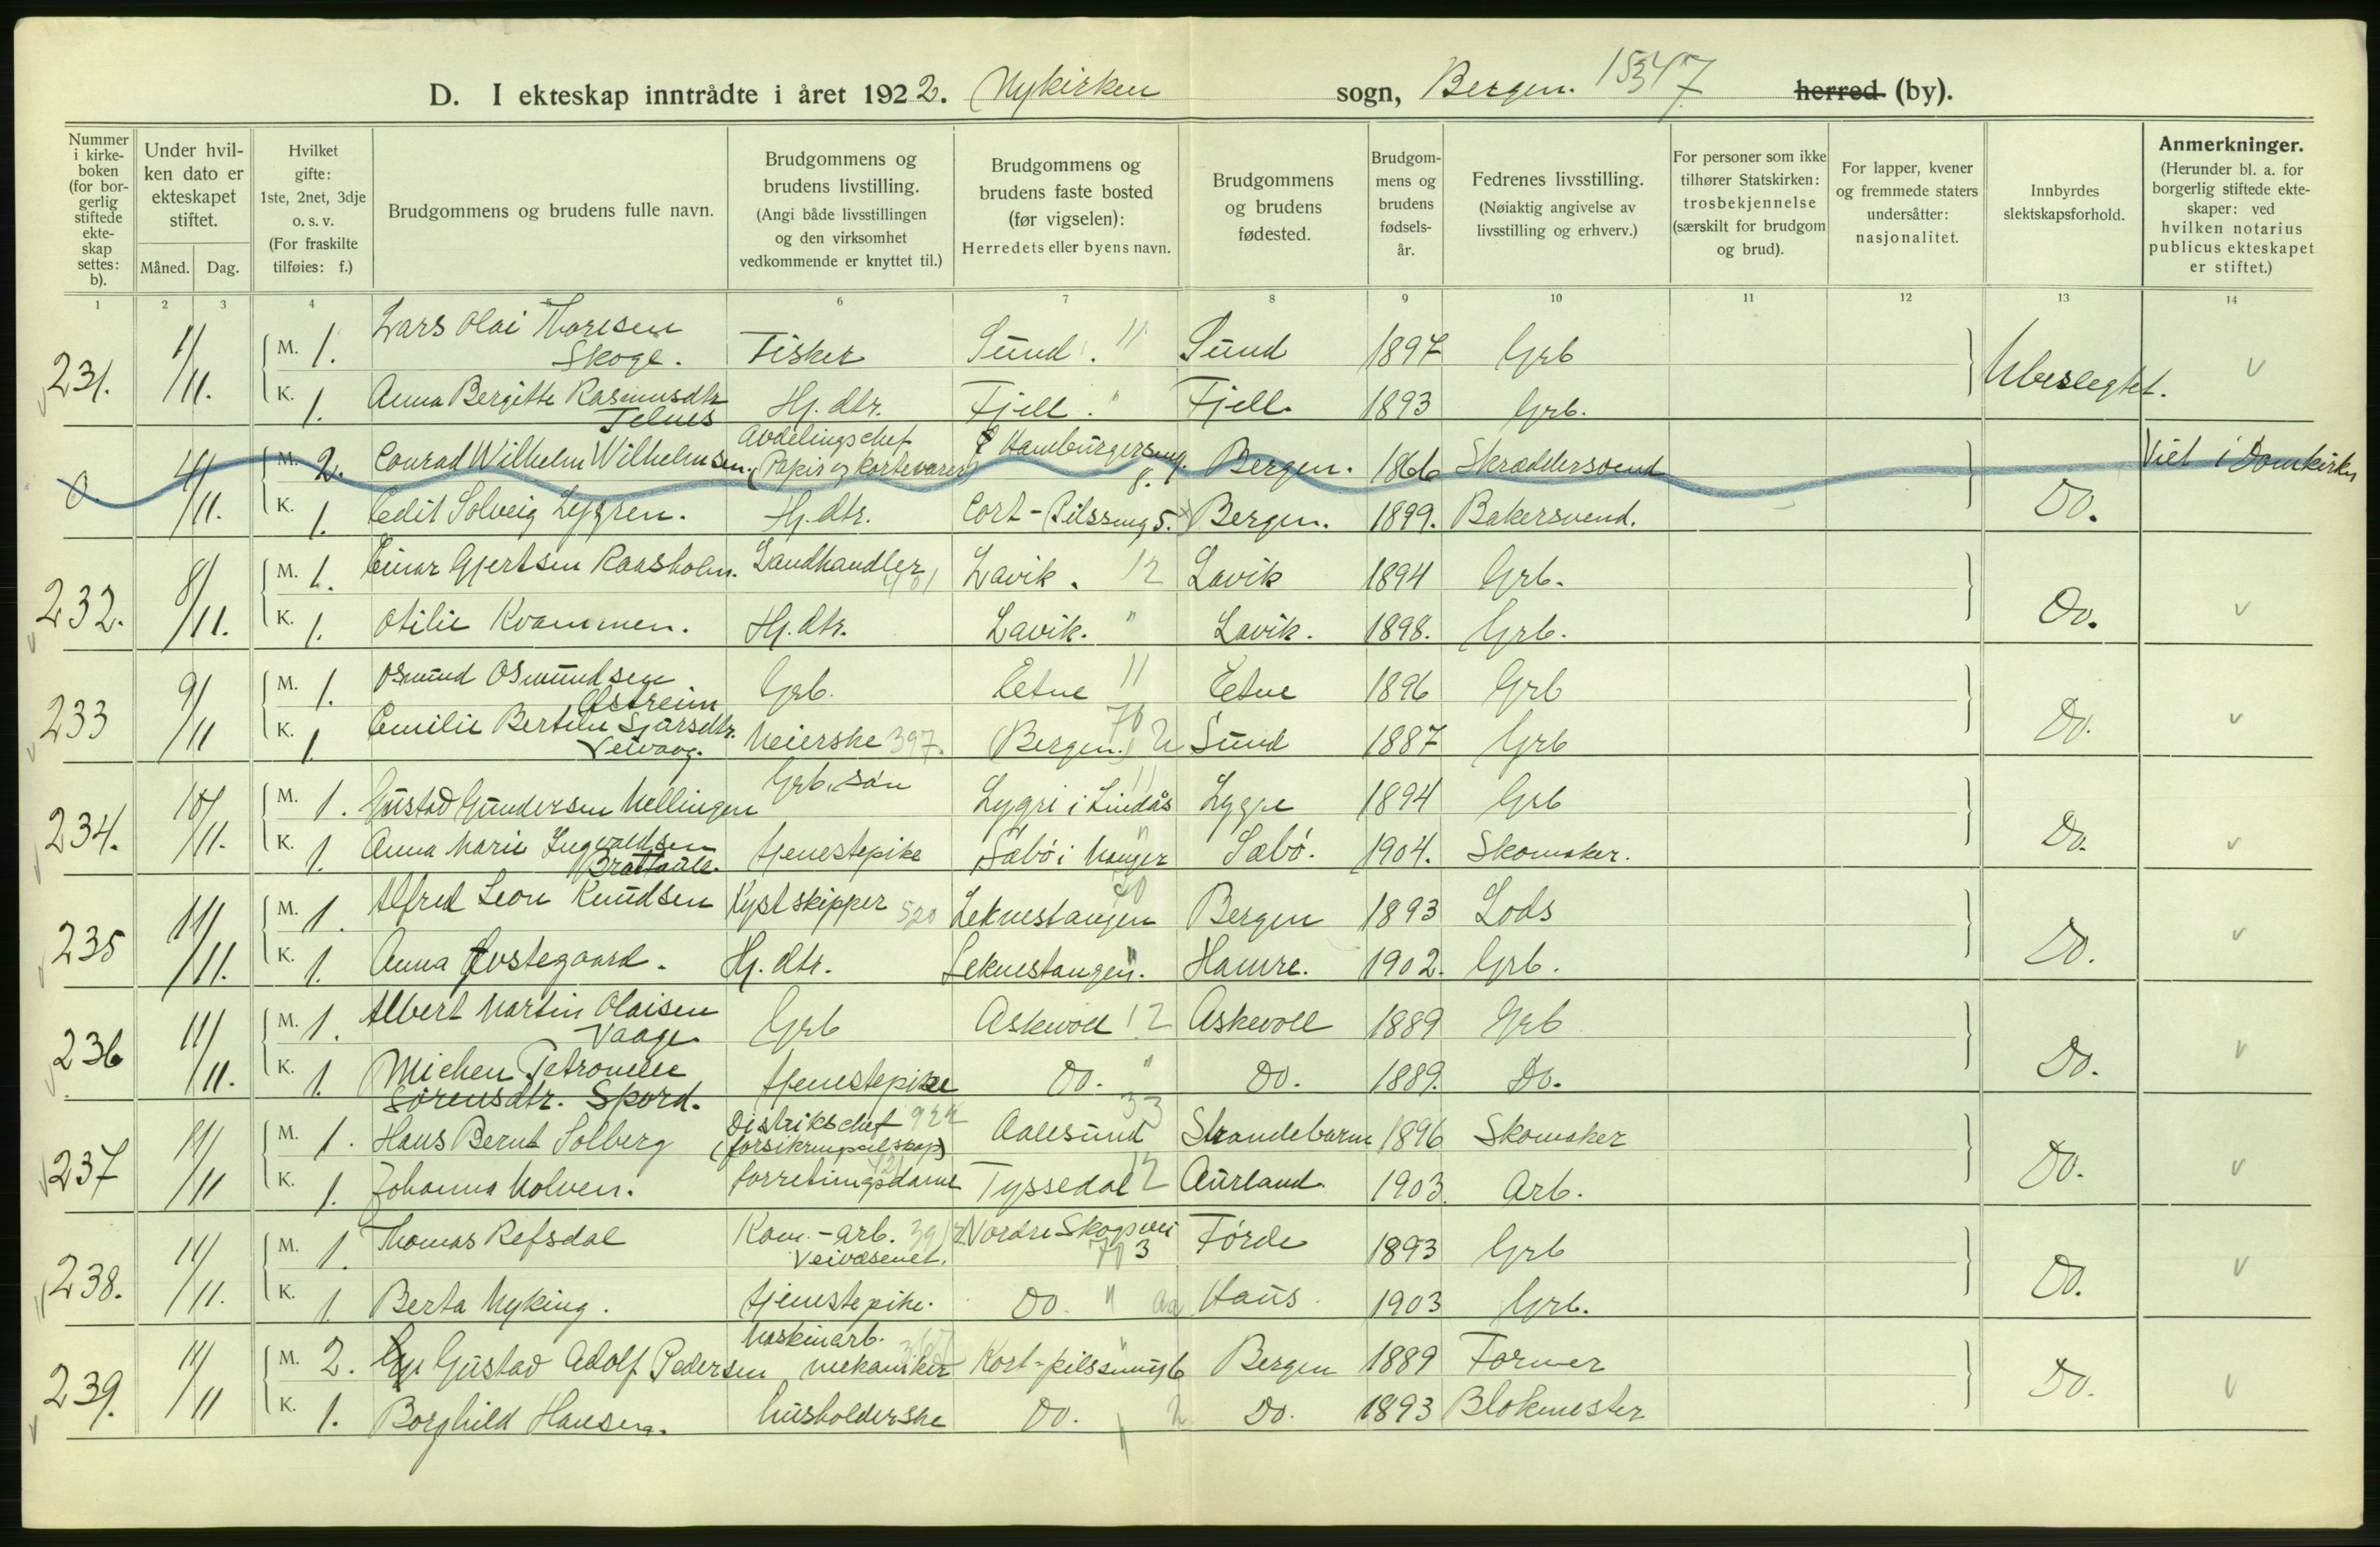 D. I ekteskap inntrådte i året 1922. Nykirken sogn, Bergen. 1534 7 herred (by).
Nummer i kirke-boken (for bor-gerlig stiftede ekte-skap settes: b).
Under hvil-ken dato er ekteskapet stiftet.
Måned. Dag.
Hvilket gifte: 1ste, 2net, 3dje o. s. v. (For fraskilte tilføies: f.)
Brudgommens og brudens fulle navn.
Brudgommens og brudens livstilling. (Angi både livsstillingen og den virksomhet vedkommende er knyttet til.)
Brudgommens og brudens faste bosted (før vigselen): Herredets eller byens navn.
Brudgommens og brudens fødested.
Brudgom-mens og brudens fødsels-år.
Fedrenes livsstilling. (Nøiaktig angivelse av livsstilling og erhverv.)
For personer som ikke tilhører Statskirken: trosbekjennelse (særskilt for brudgom og brud).
For lapper, kvener og fremmede staters undersåtter: nasjonalitet.
Innbyrdes slektskapsforhold.
Anmerkninger. (Herunder bl. a. for borgerlig stiftede ekte-skaper: ved hvilken notarius publicus ekteskapet er stiftet.)
1 2 3 4 5 6 7 8 9 10 11 12 13 14
231. 1/11. M. 1. Lars Olai Thoresen Skoge. Fisker Sund. 11 Sund 1897 Grb Ubeslegtet. v
K. 1. Anna Bergitte Rasmusdtr Telnes Hj. dtr. Fjell. " Fjell. 1893 Grb.
0. 4/11. M. 2. Conrad Wilhelm Wilhelmsen. Avdelingschef (Papir og kortevarer) Hamburgersmg. 8. Bergen. 1866 Skræddersvend Do. Viet i Domkirken
K. 1. Edit Solveig Lygren. Hj. dtr. Cort-Pilssmug 5. Bergen. 1899. Bakersvend.
232. 8/11. M. 1. Einar Gjertsen Raasholm. Landhandler Lavik. 12 Lavik 1894 Grb. Do. v
K. 1. Otilie Kvammen. Hj. dtr. Lavik. " Lavik. 1898. Grb.
233 9/11 M. 1. Osmund Osmundsen Østreim Grb. Etne 11 Etne 1896 Grb Do. v
K. 1. Emilie Bertine Sjursdtr. Veivaag. Meierske 397. Bergen. Sund 1887 Grb
234. 10/11. M. 1. Gustav Gundersen Mellingen Grb. søn Lygri i Lindås 11 Lygre 1894 Grb Do. v
K. 1. Anna Marie Ingvaldsen Brattaule. tjenestepike Sæbø i Manger Sæbø. 1904. Skomaker.
235 11/11. M. 1. Alfred Leon Knudsen Kystskipper 520 Leknestangen Bergen 1893 Lods Do. v
K. 1. Anna Øvstegaard. Hj. dtr. Leknestangen. " Hamre. 1902. Grb.
236 11/11. M. 1. Albert Martin Olaisen Vaage. Grb Askvoll 12 Askevoll 1889 Grb Do. v
K. 1. Michen Petronelle Sørensdtr. Spord. tjenestepike Do. " Do. 1889. Do.
237 11/11 M. 1. Hans Bernt Solberg Distrikschef 922 (forsikringselskap) Aalesund 33 Strandebarm 1896 Skomaker Do. v
K. 1. Johanna Molven. forretingsdame Tyssedal 12 Aurland. 1903. Arb.
238. 11/11. M. 1. Thomas Refsdal Kom.-arb. Veivæsenet. Nordre Skogvei 3 Førde 1893 Grb Do. v
K. 1 Berta Myking. tjenestepike. Do. " Haus 1903 Grb.
239. 11/11 M. 2. Gustav Adolf Pedersen Maskinarb. mekaniker Kort-pilssmug 6 Bergen 1889 Former Do. v
K. 1. Borghild Hansen. husholderske Do. Do. 1893 Blokmester